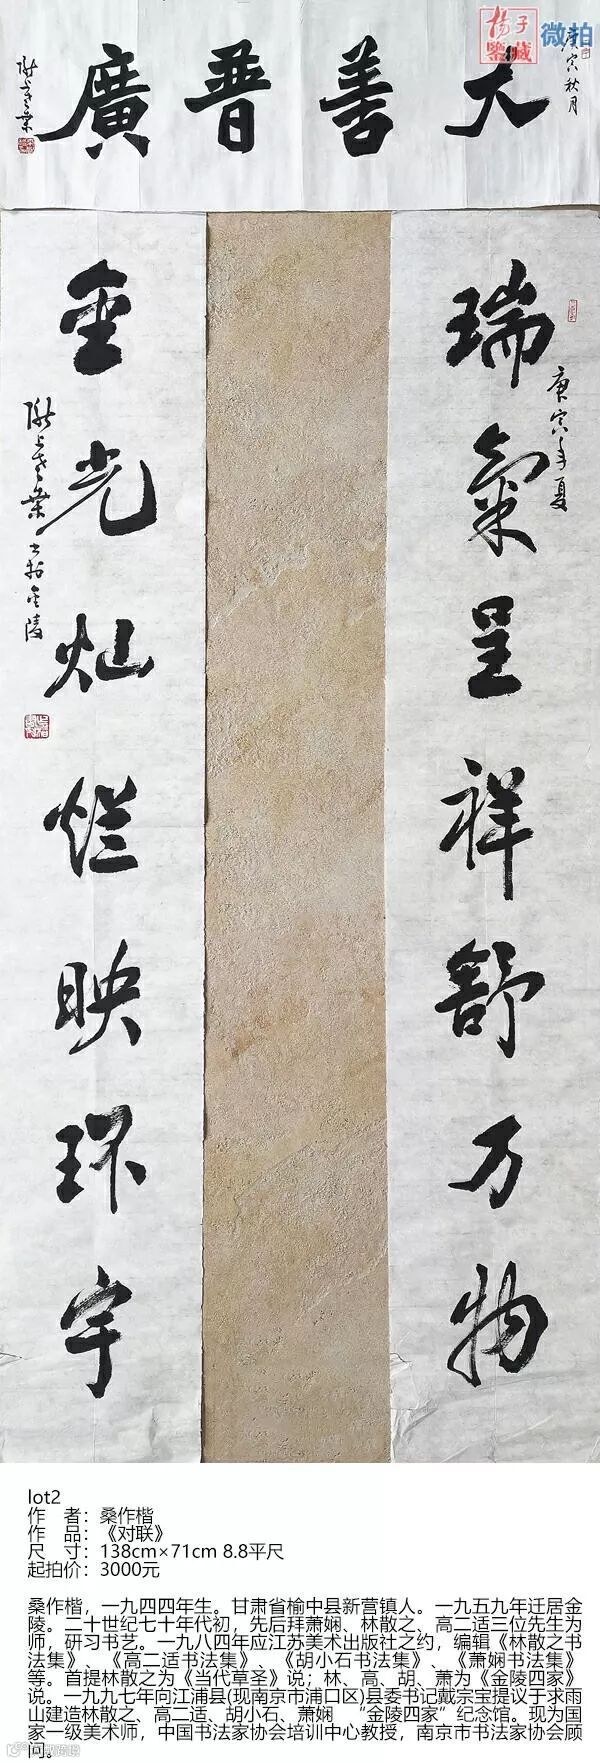 扬子
鉴藏
微拍
庚寅秋月
大善普廣
瑞氣呈祥舒万物
庚寅年夏
金光灿烂映环宇
lot2
作 者：桑作楷
作 品：《对联》
尺 寸：138cm×71cm 8.8平尺
起拍价：3000元
桑作楷，一九四四年生。甘肃省榆中县新营镇人。一九五九年迁居金
陵。二十世纪七十年代初，先后拜萧娴、林散之、高二适三位先生为
师，研习书艺。一九八四年应江苏美术出版社之约，编辑《林散之书
法集》、《高二适书法集》、《胡小石书法集》、《萧娴书法集》
等。首提林散之为《当代草圣》说；林、高、胡、萧为《金陵四家》
说。一九九七年向江浦县(现南京市浦口区)县委书记戴宗宝提议于求雨
山建造林散之、高二适、胡小石、萧娴 “金陵四家”纪念馆。现为国
家一级美术师，中国书法家协会培训中心教授，南京市书法家协会顾
问。